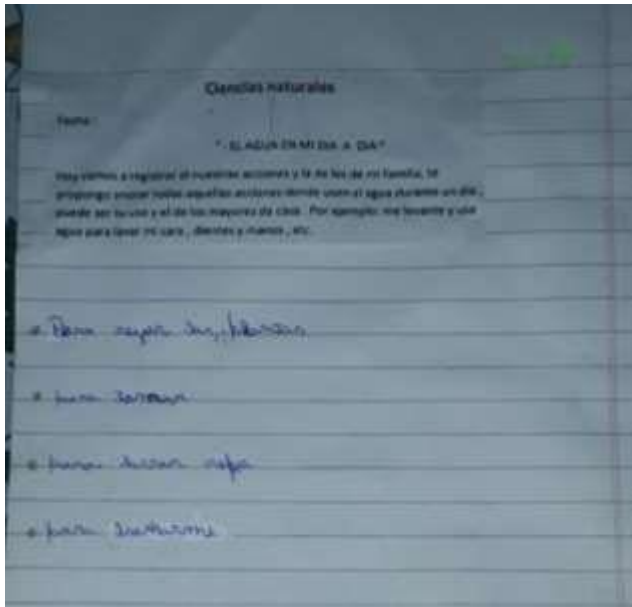 Ciencias naturales
Fecha:
"- EL AGUA EN MI DIA A DIA"
Hoy vamos a registrar en nuestras acciones y la de los de mi familia, te
propongo anotar todas aquellas acciones donde usen el agua durante un dia,
puede ser tu uso y el de los mayores de casa. Por ejemplo: me levante y use
agua para lavar mi cara, dientes y manos, etc.
• Para regar las plantas
• para
• para lavar ropa
• para